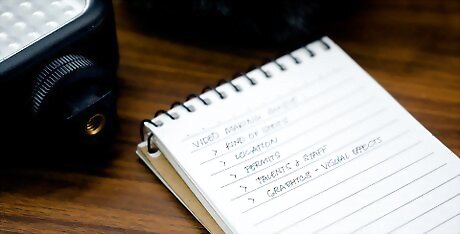 VIDEO MAKING
> KIND OF
> LOCATION
> PERMITS
> TALENTS & STAFF
> GRAPHICS - VISUAL EFFECTS